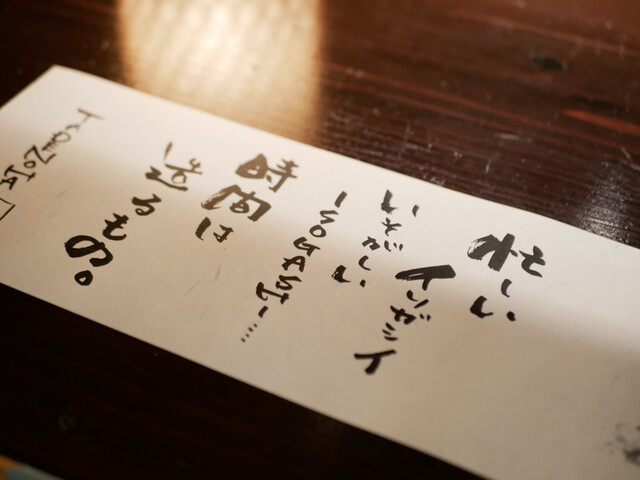 忙しい
イソガシイ
いそがしい
ISOGASHI…
時間は
造るもの。